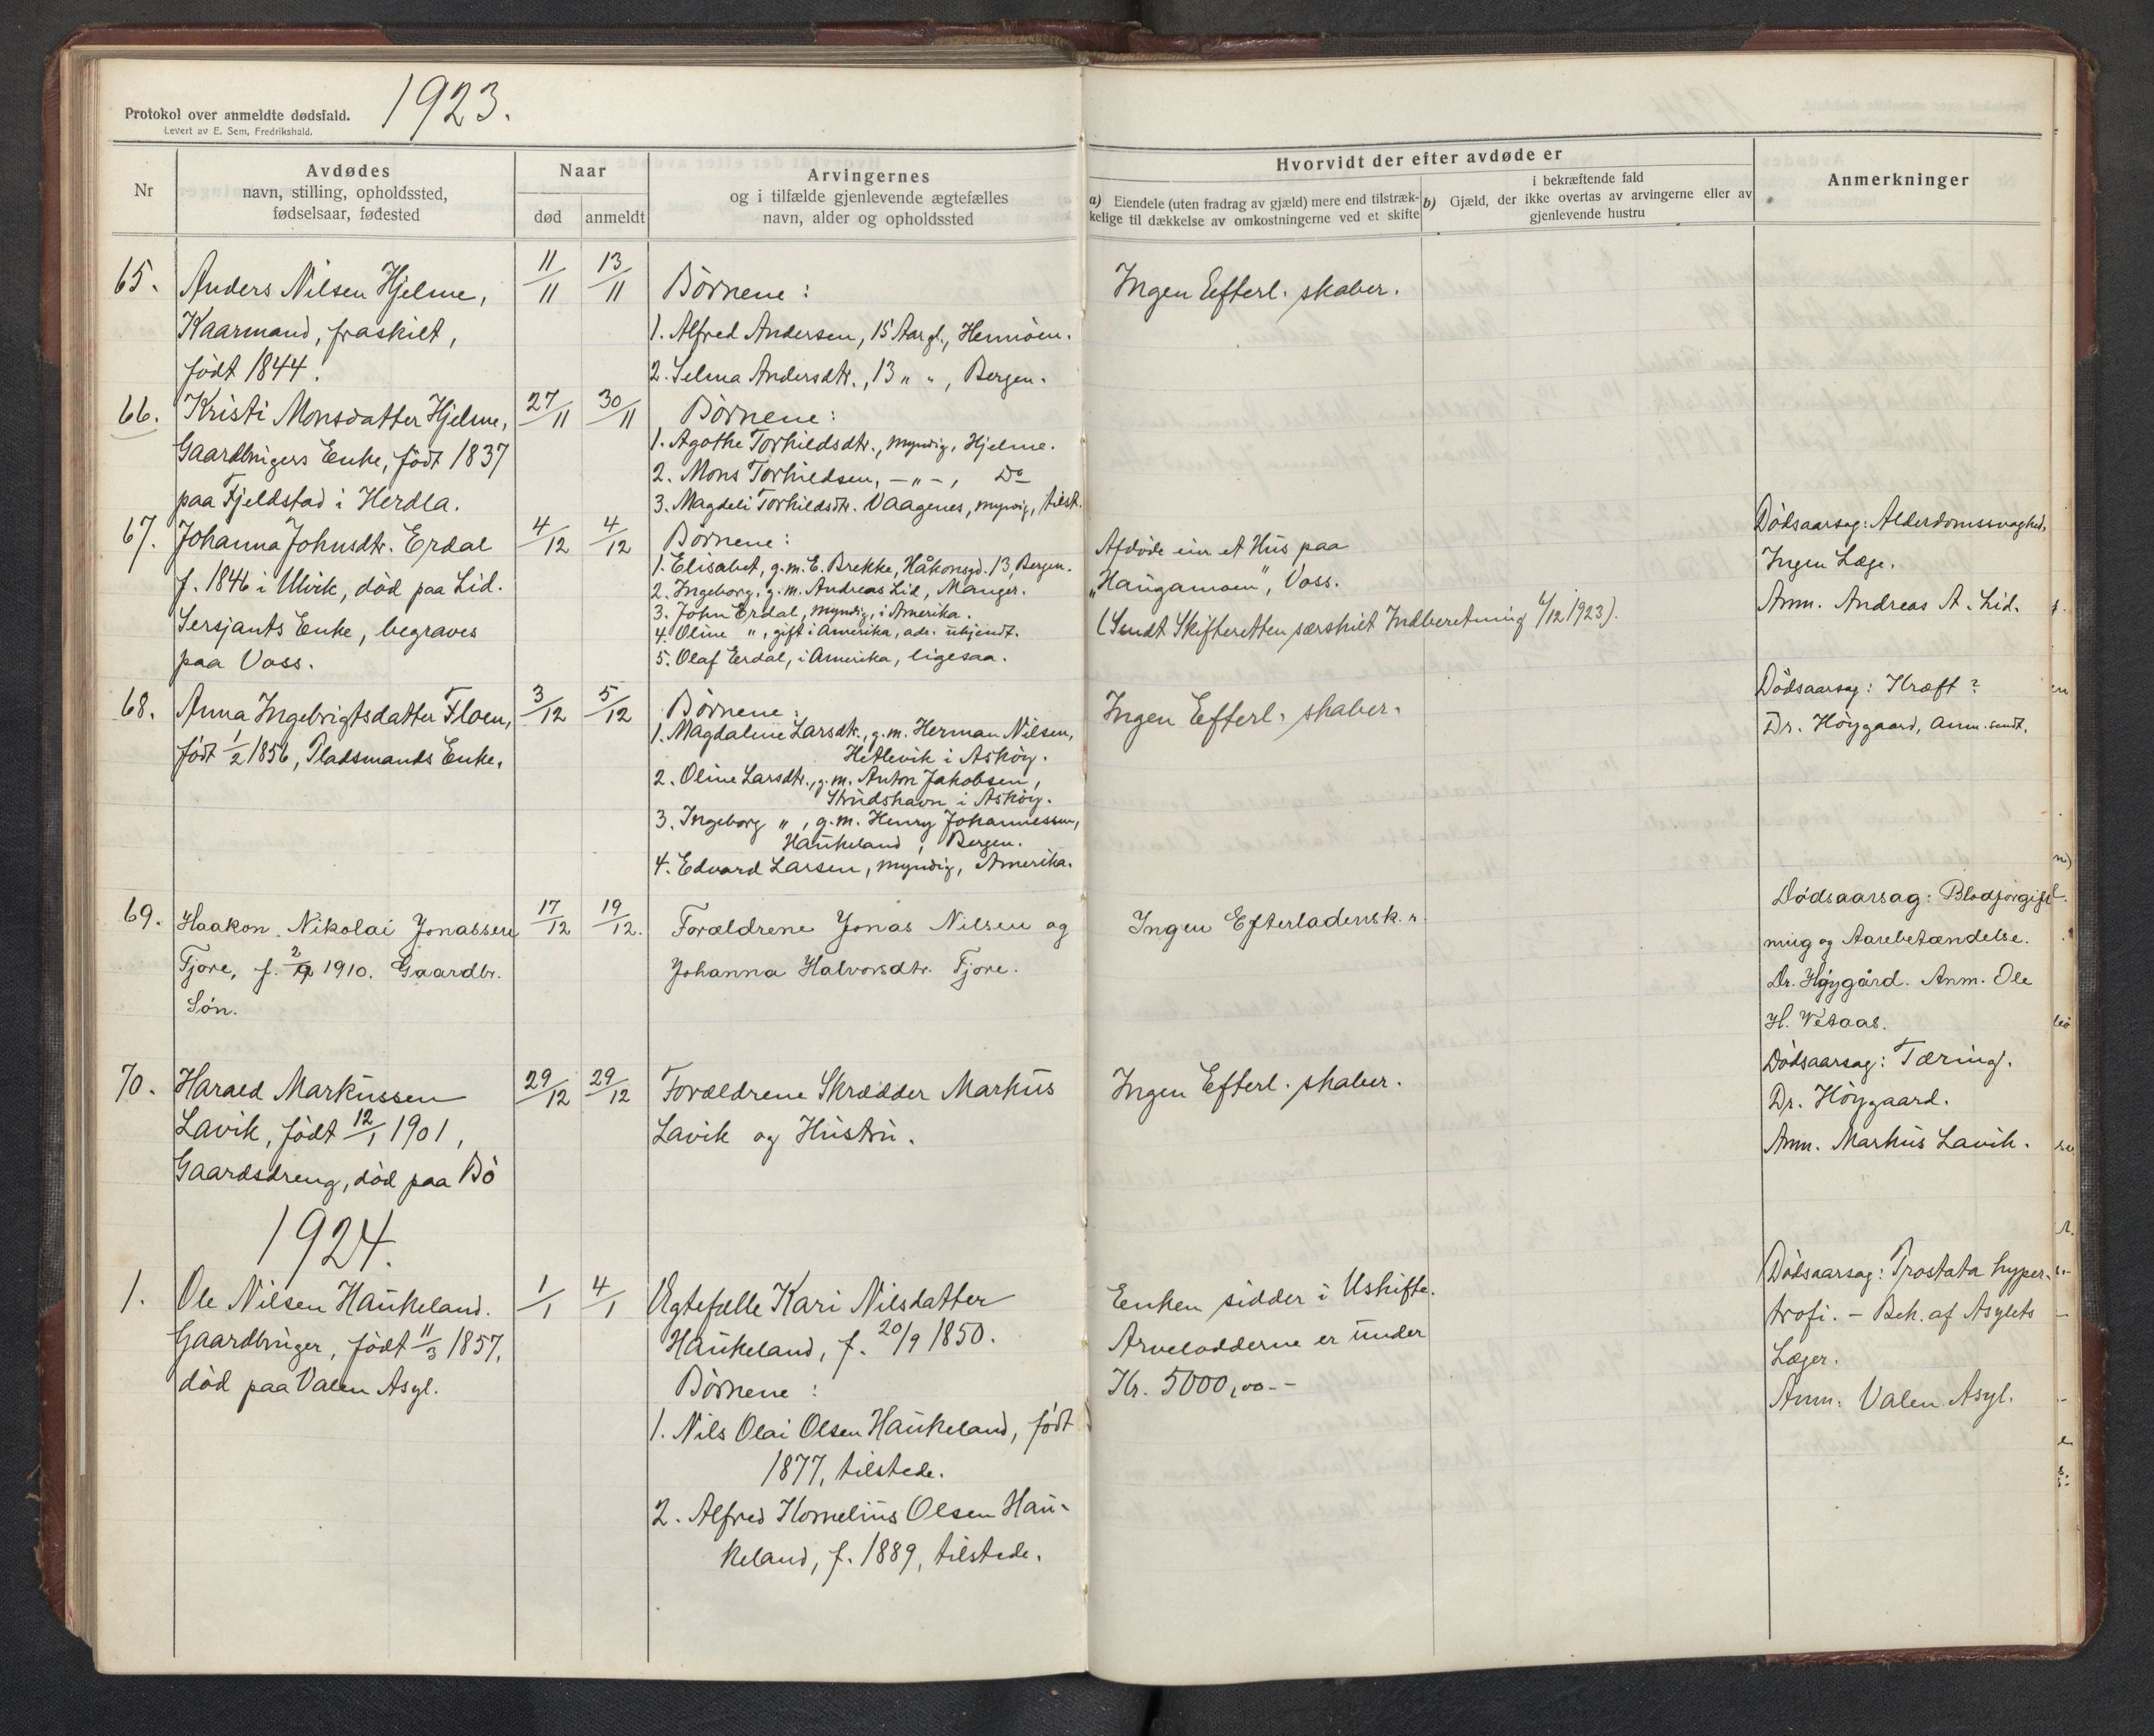 Protokol over anmeldte dødsfald.
Levert av E. Sem, Fredrikshald.
1923.
Nr
Avdødes
navn, stilling, opholdssted,
fødselsaar, fødested
Naar
død
anmeldt
Arvingernes
og i tilfælde gjenlevende ægtefælles
navn, alder og opholdssted
Hvorvidt der efter avdøde er
a) Eiendele (uten fradrag av gjæld) mere end tilstræk-
kelige til dækkelse av omkostningerne ved et skifte
i bekræftende fald
b) Gjæld, der ikke overtas av arvingerne eller av
gjenlevende hustru
Anmerkninger
65. Anders Nilsen Hjelme,
Kaarmand, fraskilt,
født 1844.
11/11
13/11
Börnene:
1. Alfred Andersen, 15 Aar gl., Hernöen.
2. Selma Andersdtr., 13 " ", Bergen.
Ingen Efterl. skaber.
66. Kristi Monsdatter Hjelme,
Gaardbrugers Enke, født 1837
paa Fjeldstad i Herdla.
27/11
30/11
Börnene:
1. Agathe Torkildsdtr., myndig, Hjelme.
2. Mons Torkildsen, -"-, Do
3. Magdeli Torkildsdtr. Vaagenes, myndig, tilst.
67. Johanna Johnsdtr. Erdal
f. 1846 i Ulvik, død paa Lid.
Sersjants Enke, begraves
paa Voss.
4/12
4/12
Börnene:
1. Elisabet, g.m. E. Brekke, Håkonsgd. 13, Bergen.
2. Ingeborg, g.m. Andreas Lid, Manger.
3. John Erdal, myndig, i Amerika.
4. Oline ", gift i Amerika, adr. ukjendt.
5. Olaf Erdal, i Amerika, ligesaa.
Afdøde eier et Hus paa
"Haugamoen", Voss.
(Sendt Skifteretten særskilt Indberetning 4/12 1923).
Dödsaarsag: Alderdomssvaghed,
Ingen Læge.
Anm. Andreas A. Lid.
68. Anna Ingebrigtsdatter Floen,
født 1/2 1856, Pladsmands Enke.
3/12
5/12
Börnene:
1. Magdaline Larsdtr., g.m. Herman Nilsen,
Hetlevik i Asköy.
2. Oline Larsdtr., g.m. Anton Jakobsen,
Strudshavn i Asköy.
3. Ingeborg ", g.m. Henry Johannessen,
Haukeland, Bergen.
4. Edvard Larsen, myndig, Amerika.
Ingen Efterl. skaber.
Dödsaarsag: Kræft?
Dr. Höygaard, Anm. sendt.
69. Haakon Nikolai Jonassen
Fjore, f. 1910. Gaardbr.
Søn.
17/12
19/12.
Forældrene Jonas Nilsen og
Johanna Halvorsdtr. Fjore.
Ingen Efterladensk. ".
Dødsaarsag: Blodforgift-
ning og Aarebetændelse.
Dr. Høygård. Anm. Ole
H. Vetaas.
70. Harald Markussen
Lavik, født 12/1 1901,
Gaardsdreng, död paa Bö
29/12
29/12
Forældrene Skrædder Markus
Lavik og Hustru.
Ingen Efterl. skaber.
Dödsaarsag: Tæring.
Dr. Höygaard.
Anm. Markus Lavik.
1924.
1. Ole Nilsen Haukeland.
Gaardbruger, født 11/3 1857,
død paa Valen Asyl.
1/1
4/1
Ægtefælle Kari Nilsdatter
Haukeland, f. 20/9 1850.
Börnene:
1. Nils Olai Olsen Haukeland, født
1877, tilstede.
2. Alfred Kornelius Olsen Hau-
keland, f. 1889, tilstede.
Enken sidder i Uskifte.
Arvelodderne er under
Kr. 5000,00.-
Dödsaarsag: Prostata hyper-
trofi. - Beh. af Asylets
Læger.
Anm. Valen Asyl.